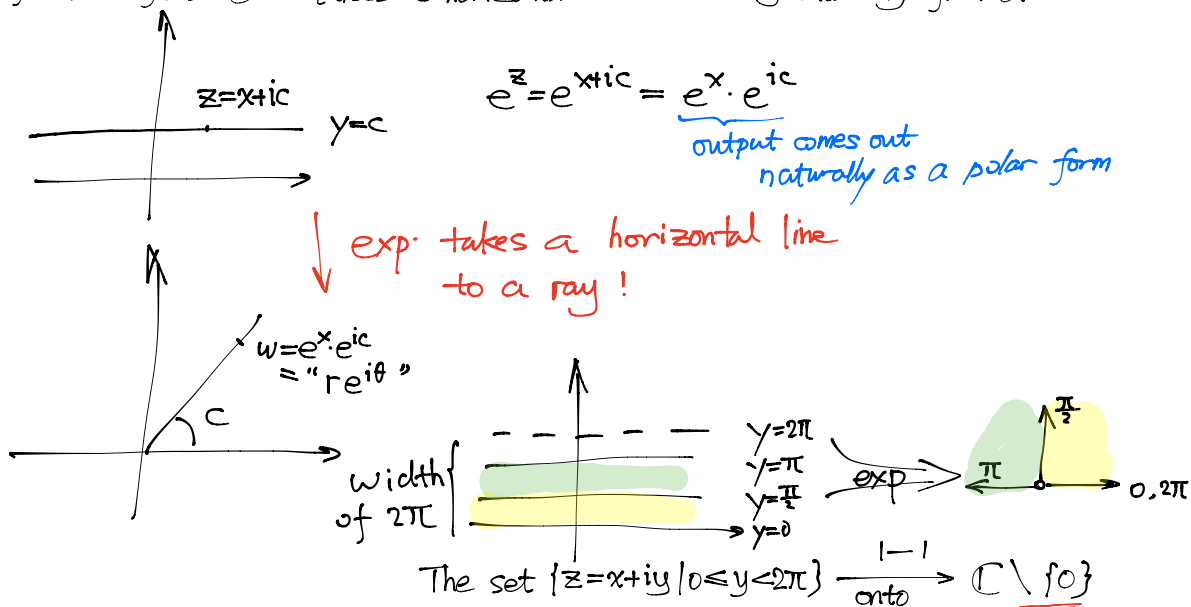 takes a horizontal
z=x+ic
y=c
e^z=e^{x+ic}= e^x·e^{ic}
output comes out
naturally as a polar form
exp. takes a horizontal line
to a ray !
w=e^x·e^{ic}
= "re^{iθ}"
c
width
of 2π
y=2π
y=π
y=π/2
y=0
exp
π/2
π
0,2π
The set {z=x+iy|0≤y<2π} 1-1 onto ℂ\{0}